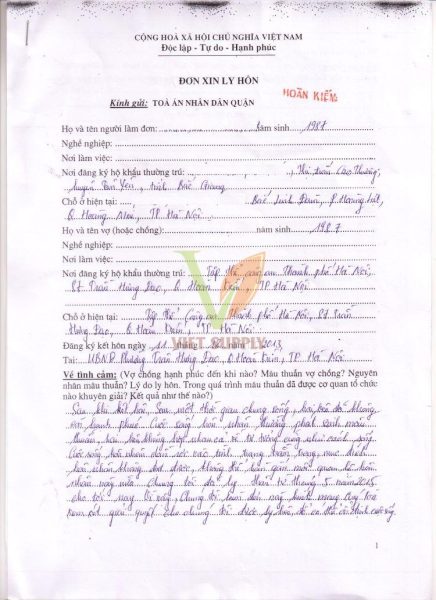 CỘNG HOÀ XÃ HỘI CHỦ NGHĨA VIỆT NAM
Độc lập - Tự do - Hạnh phúc
ĐƠN XIN LY HÔN
HOÀN KIẾM
Kính gửi: TOÀ ÁN NHÂN DÂN QUẬN
Họ và tên người làm đơn: năm sinh 1987
Nghề nghiệp:
Nơi làm việc:
Nơi đăng ký hộ khẩu thường trú: Thị trấn Cao Thượng,
huyện Tân Yên, tỉnh Bắc Giang
Chỗ ở hiện tại: Bắc Linh Đàm, P. Hoàng Liệt,
Q. Hoàng Mai, TP. Hà Nội
Họ và tên vợ (hoặc chồng): năm sinh 1987
Nghề nghiệp:
Nơi làm việc:
Nơi đăng ký hộ khẩu thường trú: Tập thể công an Thành phố Hà Nội,
Trần Hưng Đạo, Q. Hoàn Kiếm, TP. Hà Nội
VIET SUPPLY
Chỗ ở hiện tại: Tập thể Công an Thành phố Hà Nội, Trần
Hưng Đạo, Q. Hoàn Kiếm, TP. Hà Nội
Đăng ký kết hôn ngày 11 tháng 2013
Tại: UBND Phường Trần Hưng Đạo, Q. Hoàn Kiếm, TP. Hà Nội
Về tình cảm: (Vợ chồng hạnh phúc đến khi nào? Mâu thuẫn vợ chồng? Nguyên
nhân mâu thuẫn? Lý do ly hôn. Trong quá trình mâu thuẫn đã được cơ quan tổ chức
nào khuyên giải? Kết quả như thế nào?)
Sau khi kết hôn, sau một thời gian chung sống, hai bên đã không
còn hạnh phúc. Cuộc sống hôn nhân thường phát sinh mâu
thuẫn, hai bên không hợp nhau cả về tư tưởng cũng như cách sống.
Cuộc sống hôn nhân trầm trọng, mục đích
hôn nhân không đạt được, không thể hàn gắn mối quan hệ hôn
nhân này nữa. Chúng tôi đã ly thân từ tháng 5 năm 2015
cho tới nay. Vì vậy, chúng tôi làm đơn này kính mong Quý toà
xem xét giải quyết cho chúng tôi được ly hôn, để có thể cuộc sống
1